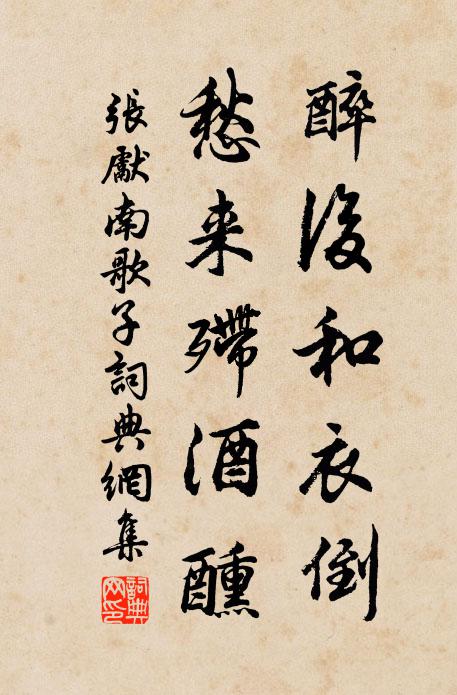 醉後和衣倒
愁来殢酒醺
張獻南歌子詞典網集
詞典
网印